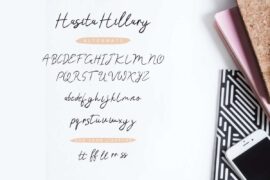 Hasita Hillary
ALTERNATE
ABCDEFGHIJKLMNO
PQRSTUVWXYZ
abcdefghijklmno
pqrstuvwxyz
tt ff ll rr ss